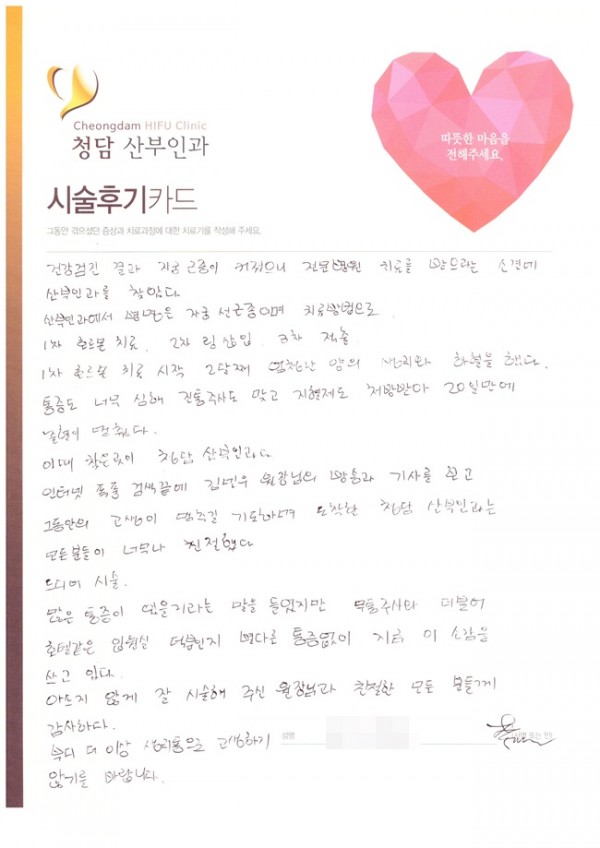 Cheongdam HIFU Clinic
청담 산부인과
따뜻한 마음을
전해주세요.
시술후기카드
그동안 겪으셨던 증상과 치료과정에 대한 치료기를 작성해 주세요.
건강검진 결과 자궁 근종이 커졌으니 전문병원 치료를 받으라는 소견에
산부인과를 찾았다.
산부인과에서 병명은 자궁 선근종이며 치료방법으로
1차 호르몬 치료. 2차 링 삽입. 3차 적출.
1차 호르몬 치료 시작 2달째 엄청난 양의 생리와 하혈을 했다.
통증도 너무 심해 진통주사도 맞고 지혈제도 처방받아 20일만에
멈췄다.
이때 찾은곳이 청담 산부인과다.
인터넷 폭풍 검색끝에 김민우 원장님의 방송과 기사를 보고
그동안의 고생이 멈추길 기도하며 도착한 청담 산부인과는
모든분들이 너무나 친절했다
드디어 시술.
많은 통증이 있을거라는 말을 들었지만 무통주사와 더불어
호텔같은 입원실 덕분인지 별다른 통증없이 지금 이 소감을
쓰고 있다.
아프지 않게 잘 시술해 주신 원장님과 친절한 모든 분들께
감사하다.
부디 더 이상 생리통으로 고생하기
않기를 바랍니다.
성명